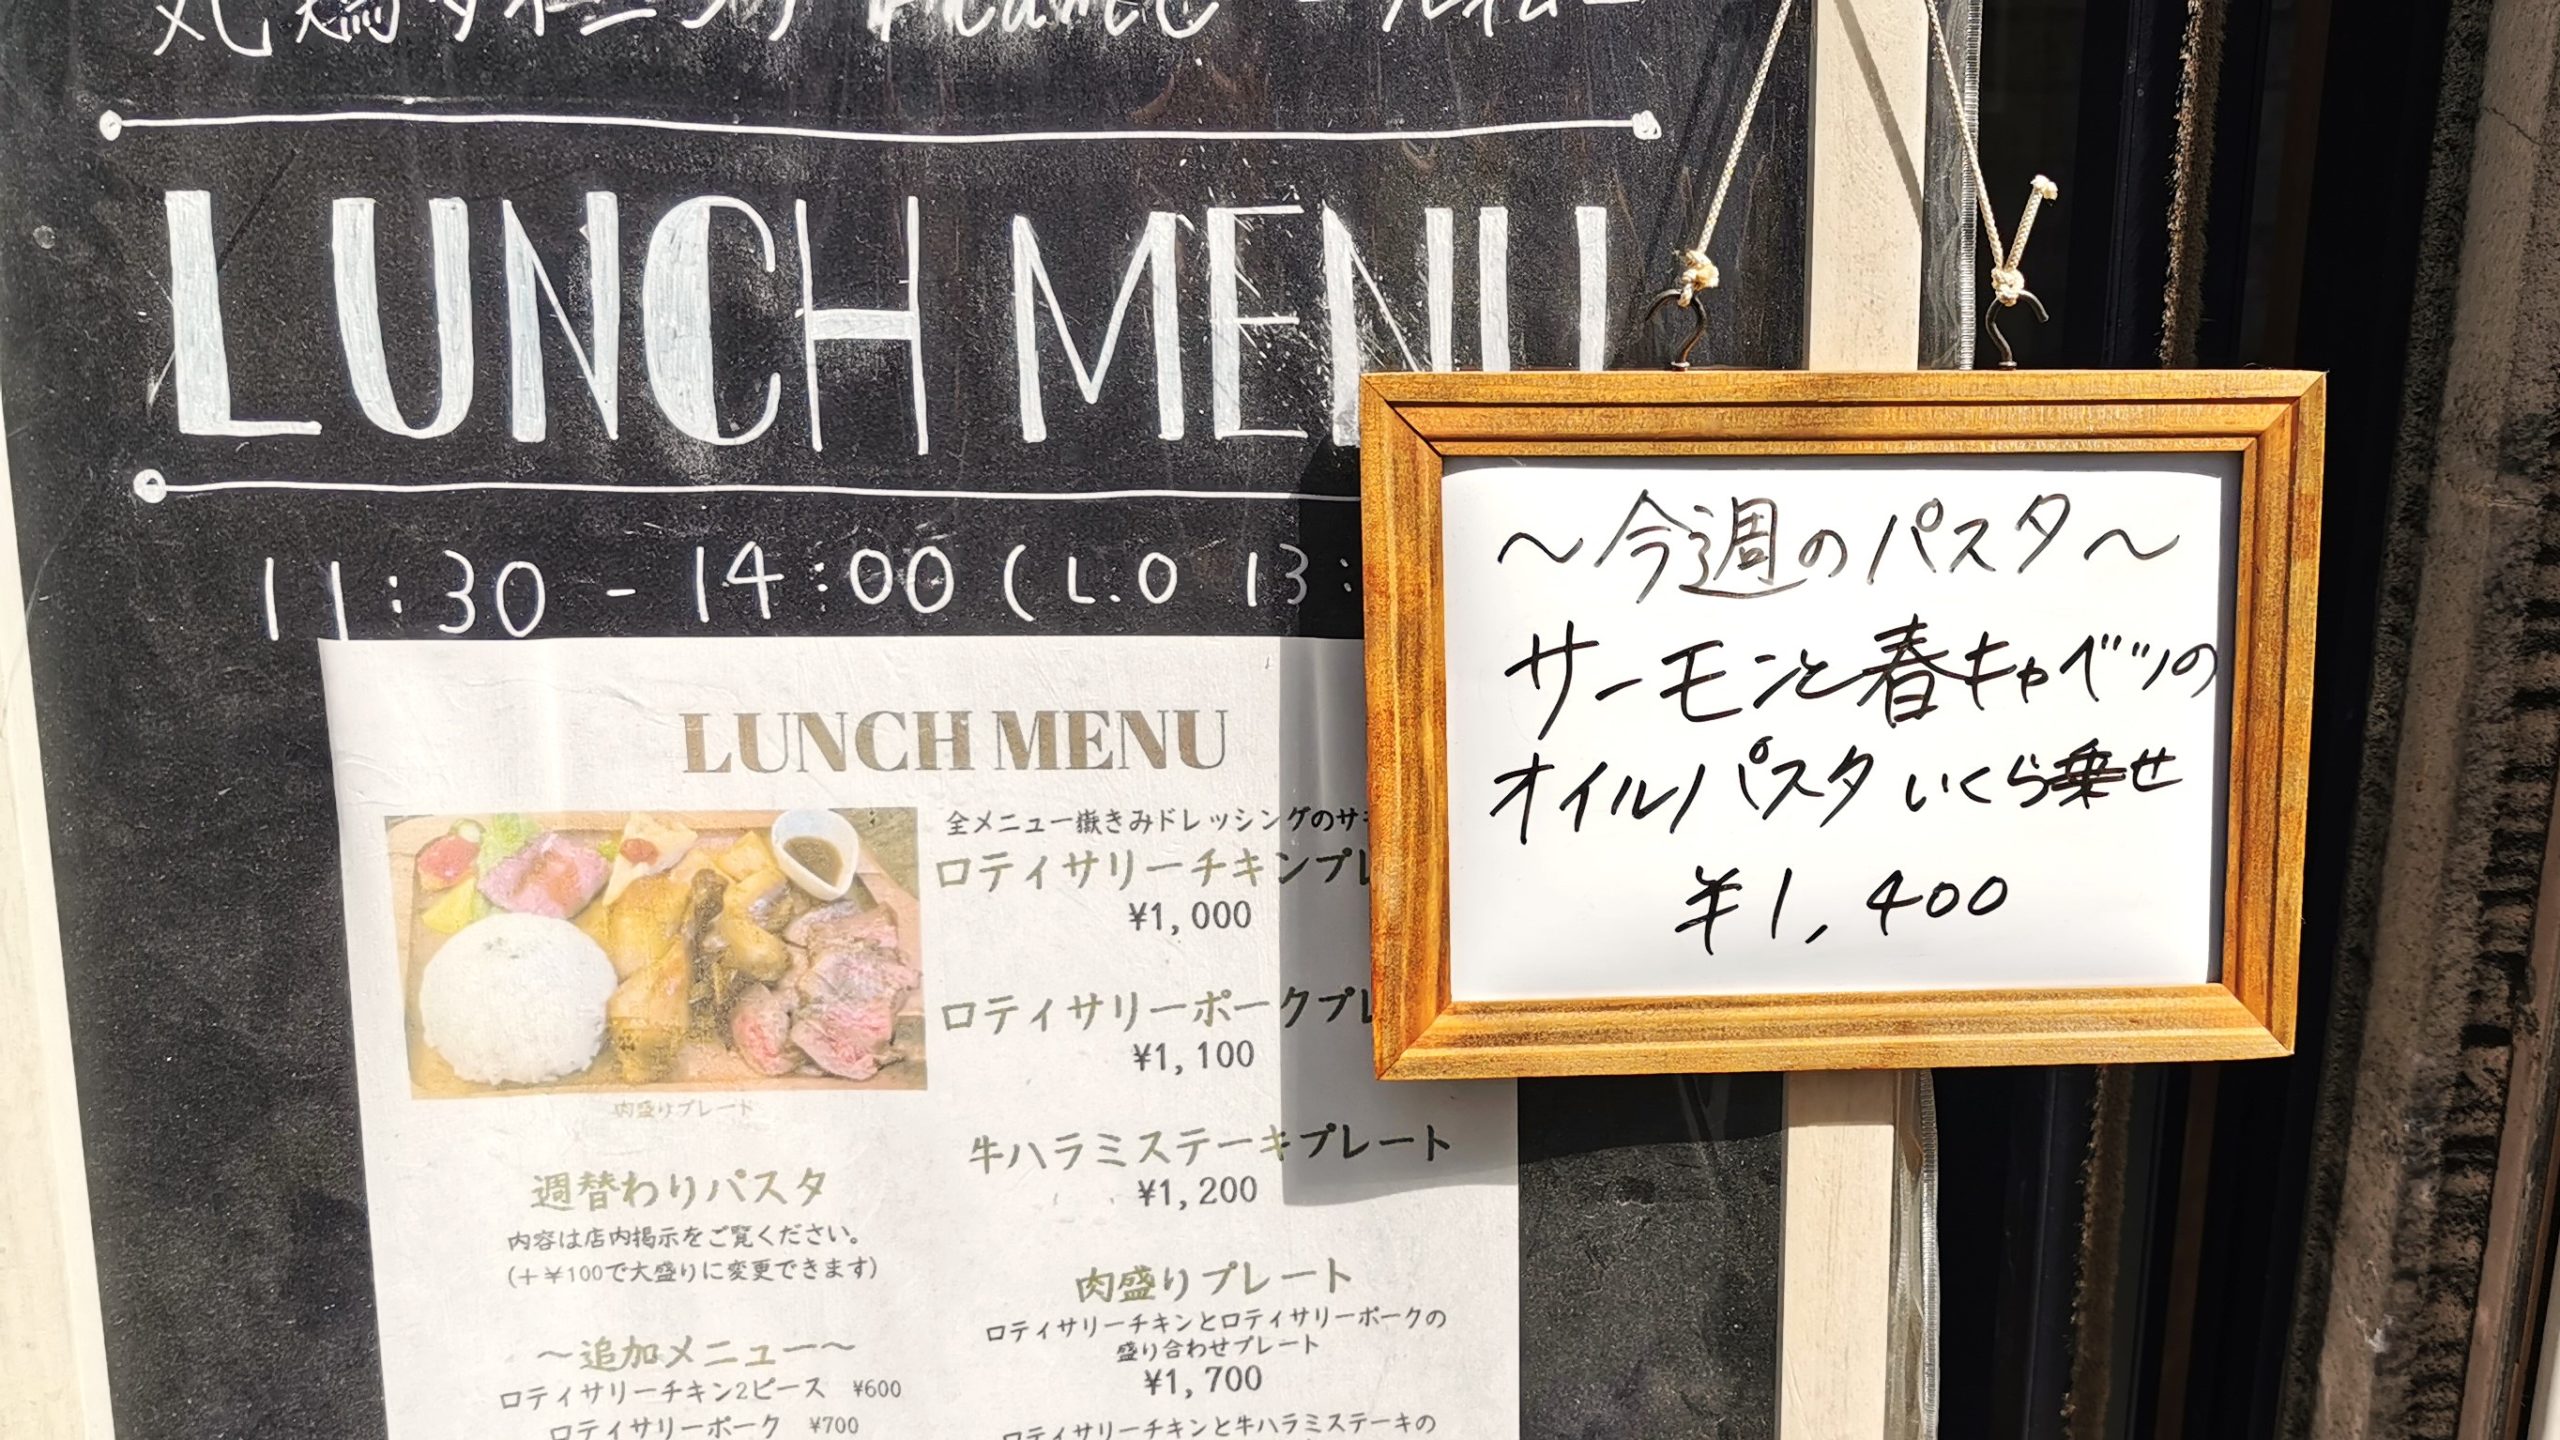 丸鶏ダイニング
LUNCH MENU
11:30 - 14:00 (L.O 13:
LUNCH MENU
肉盛りプレート
週替わりパスタ
内容は店内掲示をご覧ください。
(+¥100で大盛りに変更できます)
～追加メニュー～
ロティサリーチキン2ピース ¥600
ロティサリーポーク ¥700
全メニュー嶽きみドレッシングのサ
ロティサリーチキンプレ
¥1,000
ロティサリーポークプレ
¥1,100
牛ハラミステーキプレート
¥1,200
肉盛りプレート
ロティサリーチキンとロティサリーポークの
盛り合わせプレート
¥1,700
ロティサリーチキンと牛ハラミステーキの
～今週のパスタ～
サーモンと春キャベツの
オイルパスタ いくら乗せ
¥1,400